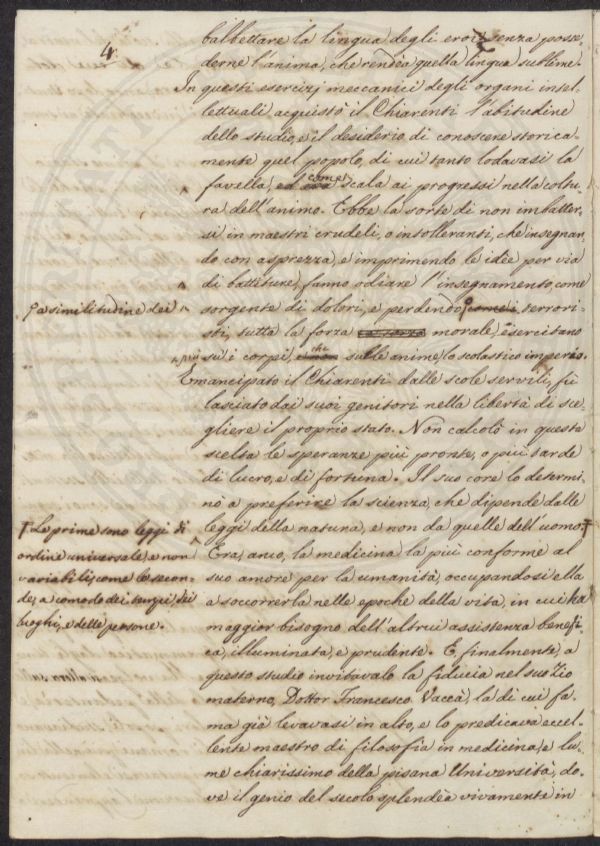 4.
balbettare la lingua degli eroi, senza posse-
derne l'anima, che rendea quella lingua sublime.
In questi esercizj meccanici degli organi intel-
lettuali acquistò il Chiarenti l'abitudine
dello studio, e il desiderio di conoscere storica-
mente quel popolo, di cui tanto lodavasi la
favella, come scala ai progressi nella coltu-
ra dell'animo. Ebbe la sorte di non imbatter-
si in maestri crudeli, o intolleranti, che insegnan-
do con asprezza, e imprimendo le idee per via
di battiture, fanno odiare l'insegnamento, come
sorgente di dolori, e perdendo terrori-
sti, tutta la forza morale, esercitano
su i corpi, che sulle anime, lo scolastico imperio.
Emancipato il Chiarenti dalle scole servili, fù
lasciato dai suoi genitori nella libertà di sce-
gliere il proprio stato. Non calcolò in questa
scelta le speranze più pronte, o più tarde
di lucro, e di fortuna. Il suo core lo determi-
nò a preferire la scienza, che dipende dalle
leggi della natura, e non da quelle dell'uomo.
Era, anco, la medicina la più conforme al
suo amore per la umanità, occupandosi ella
a soccorrerla nelle epoche della vita, in cui ha
maggior bisogno dell'altrui assistenza benefi-
ca, illuminata, e prudente. E, finalmente, a
questo studio invitavalo la fiducia nel suo Zio
materno, Dottor Francesco Vaccà, la di cui fa-
ma già levavasi in alto, e lo predicava eccel-
lente maestro di filosofia in medicina, e lu-
me chiarissimo della pisana Università, do-
ve il genio del secolo splendea vivamente in
a similitudine dei
più
† Le prime sono leggi di
ordine universale, e non
variabili, come le secon-
de, a comodo dei tempi, dei
luoghi, e delle persone.